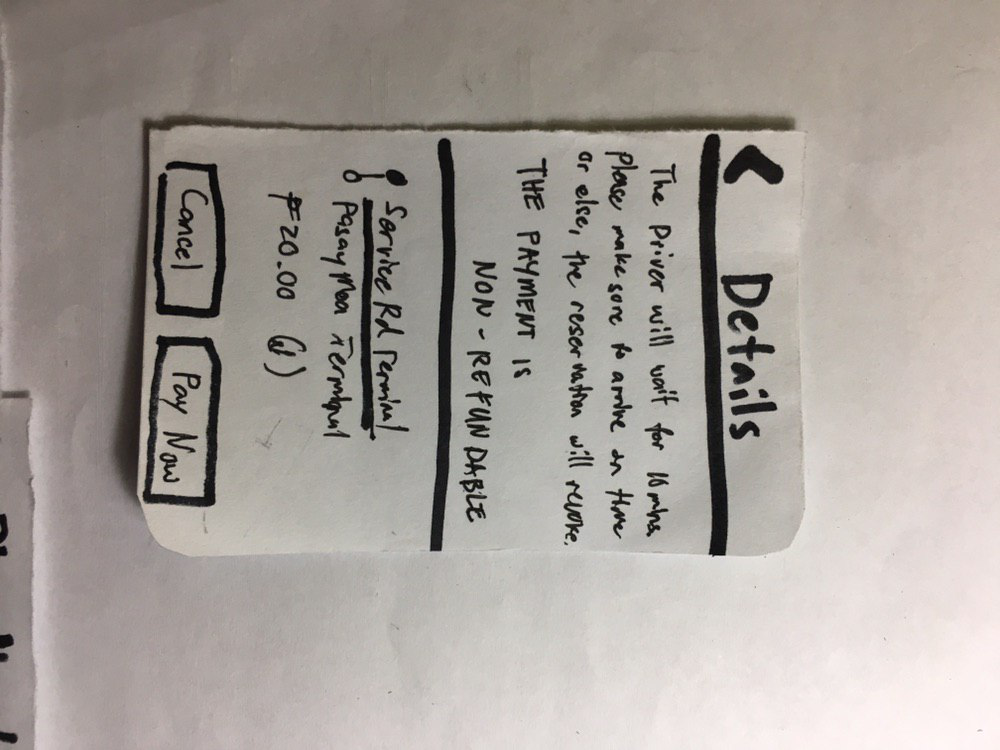 Details
The Driver will wait for 10 mins.
please make sure to arrive on time
or else, the reservation will revoke.
THE PAYMENT IS
NON-REFUNDABLE
Service Rd Terminal
Pasay Moa Terminal
₱20.00 (1)
Cancel
Pay Now